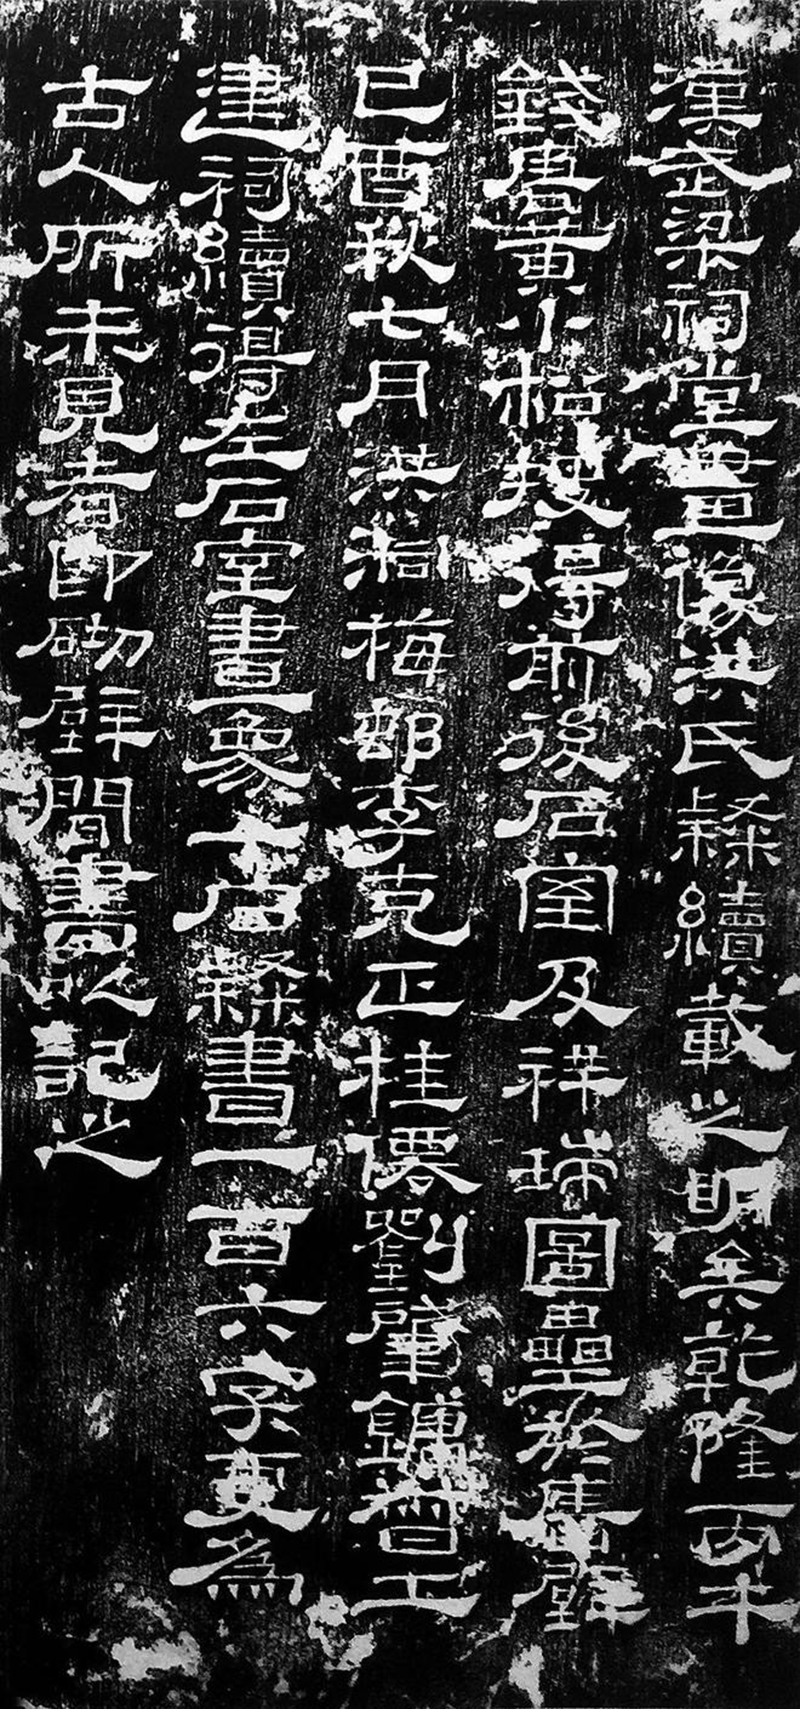 漢武梁祠堂畫像洪氏隸續載之明矣乾隆丙午
錢唐黃小松搜得前後石室及祥瑞圖壘於壁
己酉秋七月洪洞梅李克正桂僊劉肇鏞督工
建祠續得左石室畫象十石隸書一百六字更為
古人所未見者即砌壁間書以記之